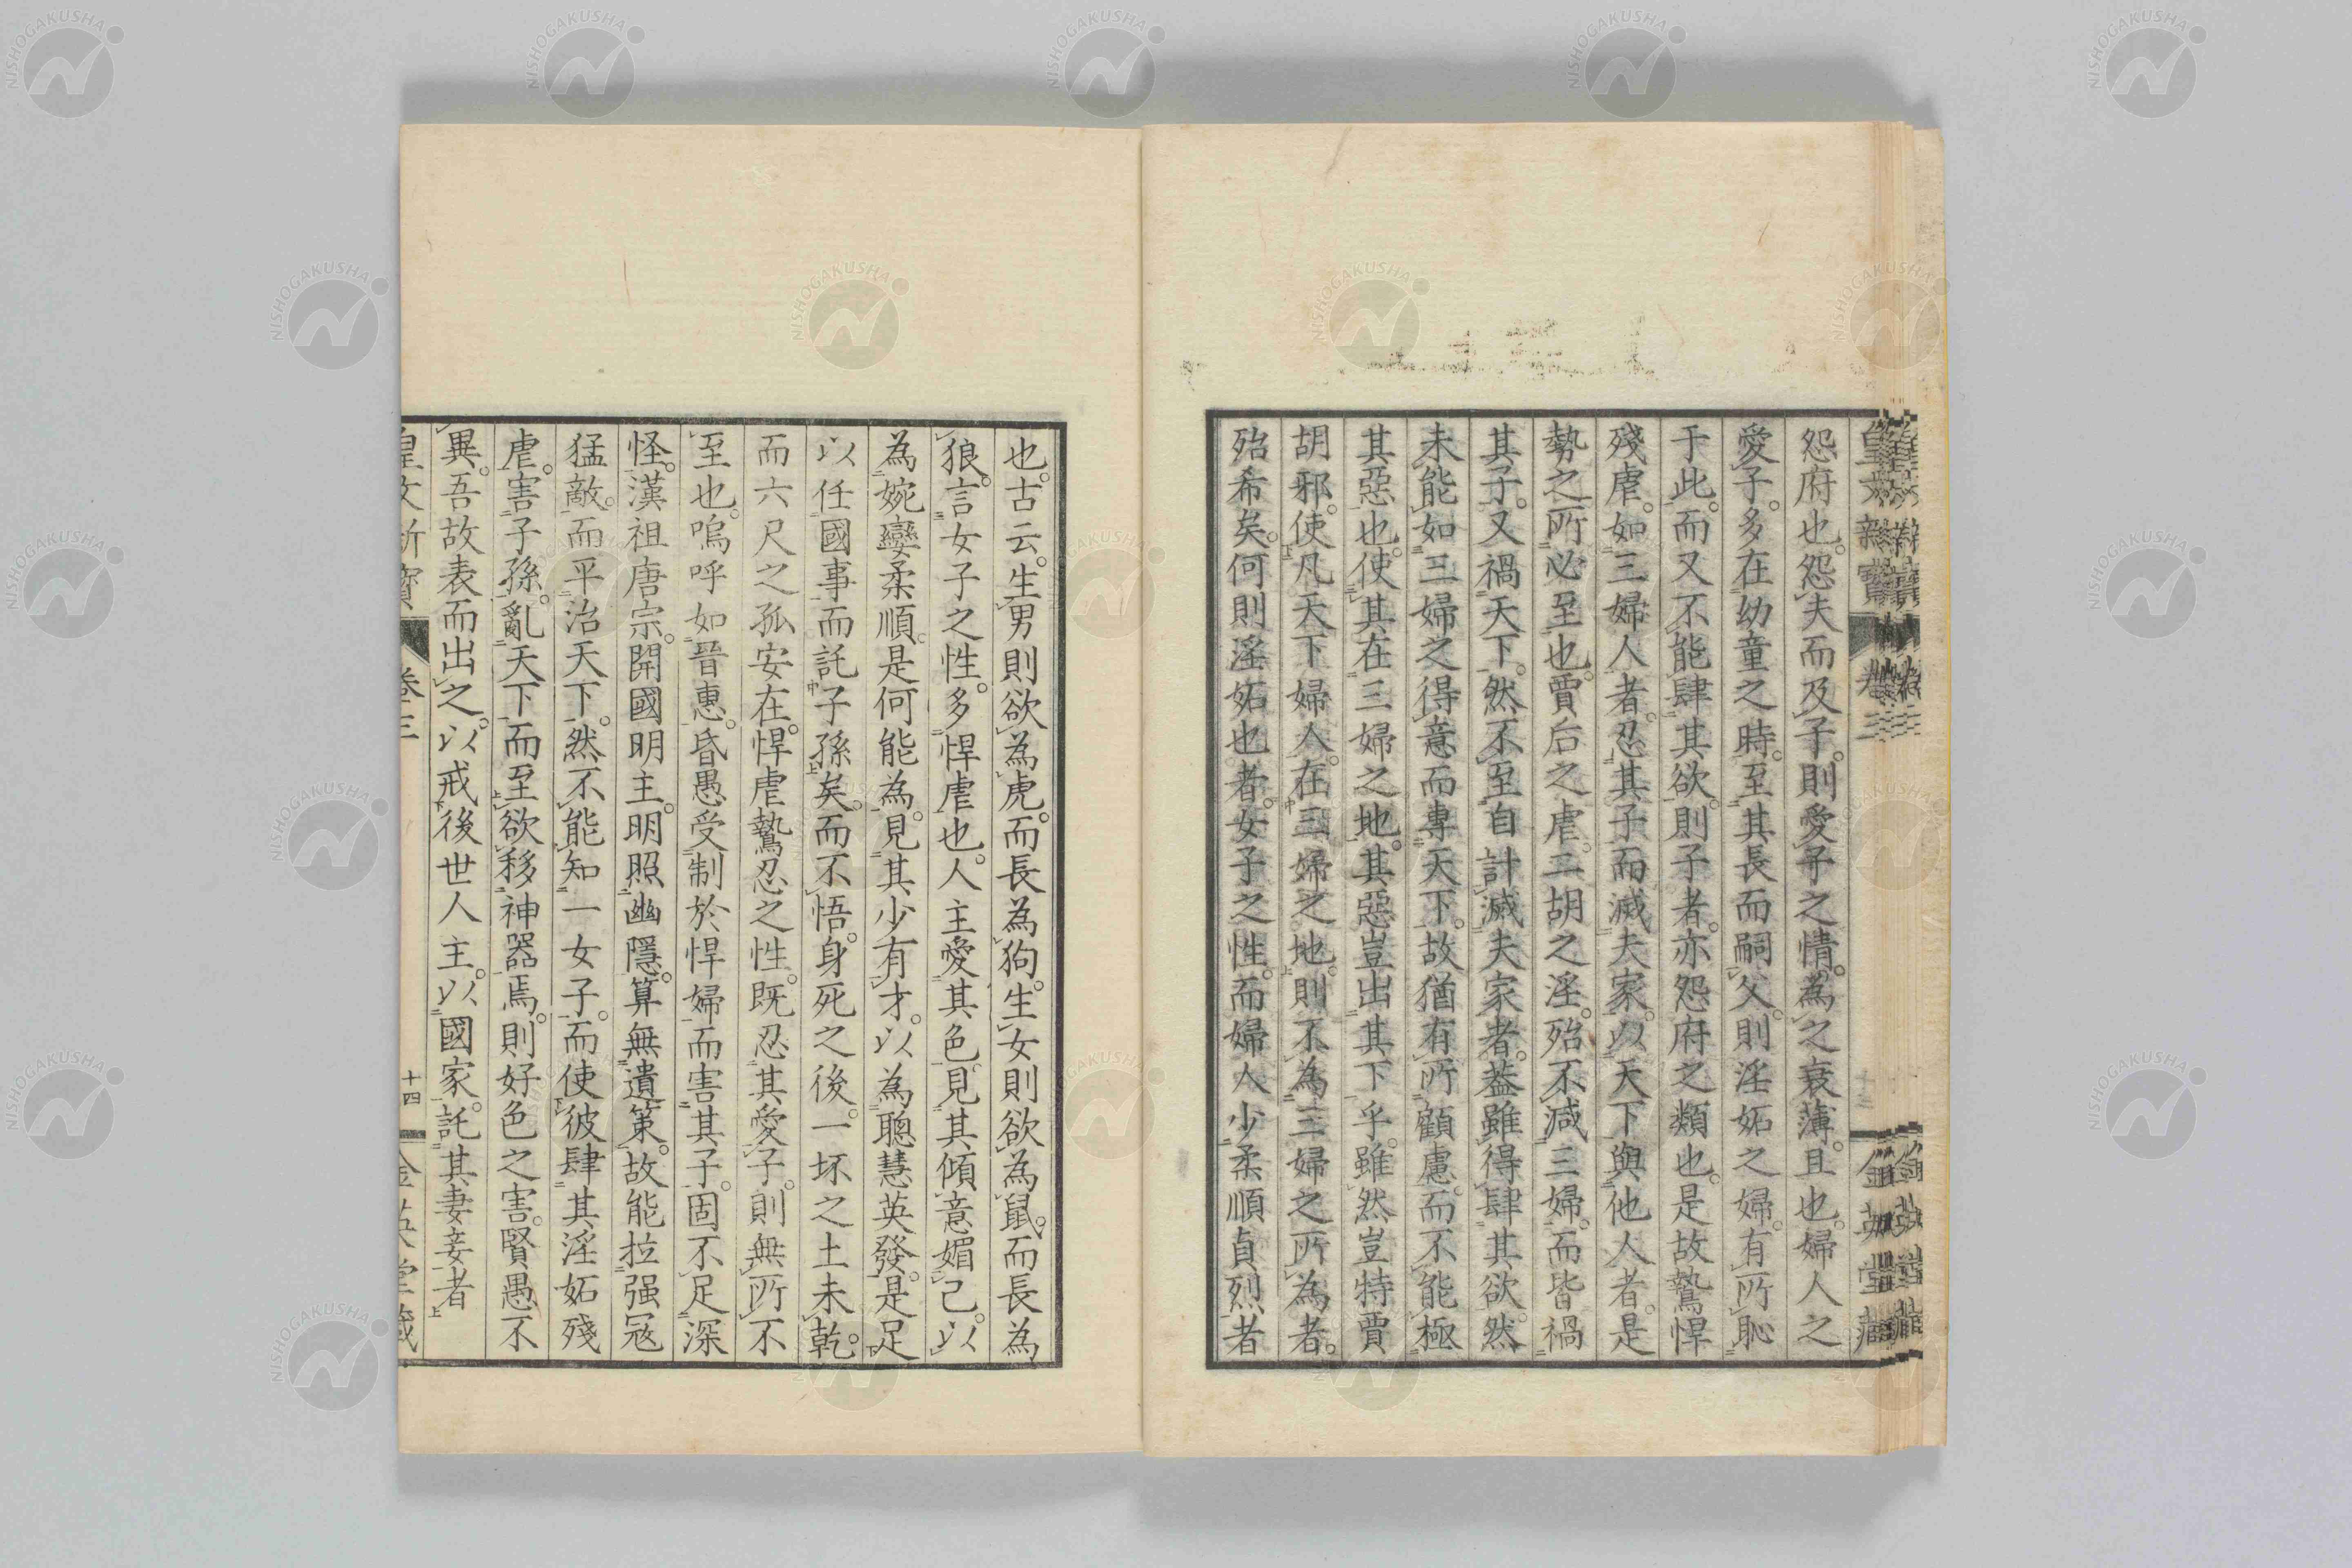 怨府也。怨夫而及子。則愛子之情。為之衰薄。且也婦人之
愛子。多在幼童之時。至其長而嗣父。則淫妬之婦。有所恥
于此。而又不能肆其欲。則子者。亦怨府之類也。是故鷙悍
殘虐。如三婦人者。忍其子而滅夫家。以天下與他人者。是
勢之所必至也。賈后之虐。二胡之淫。殆不減三婦。而皆禍
其子。又禍天下。然不至自計滅夫家者。蓋雖得肆其欲。然
未能如三婦之得意而專天下。故猶有所顧慮。而不能極
其惡也。使其在三婦之地。其惡豈出其下乎。雖然豈特賈
胡邪。使凡天下婦人。在三婦之地。則不為三婦之所為者。
殆希矣。何則淫妬也者。女子之性。而婦人少柔順貞烈者
也。古云。生男則欲為虎。而長為狗。生女則欲為鼠。而長為
狼。言女子之性。多悍虐也。人主愛其色。見其傾意媚己。以
為婉孌柔順。是何能為。見其少有才。以為聰慧英發。是足
以任國事而託子孫矣。而不悟。身死之後。一坏之土未乾。
而六尺之孤安在。悍虐鷙忍之性。既忍其愛子。則無所不
至也。嗚呼如晉惠。昏愚受制於悍婦而害其子。固不足深
怪。漢祖唐宗。開國明主。明照幽隱。算無遺策。故能拉强冦
猛敵。而平治天下。然不能知一女子。而使彼肆其淫妬殘
虐。害子孫。亂天下而至欲移神器焉。則好色之害。賢愚不
異。吾故表而出之。以戒後世人主。以國家託其妻妾者
皇文新寶 卷三 十四 金英堂藏